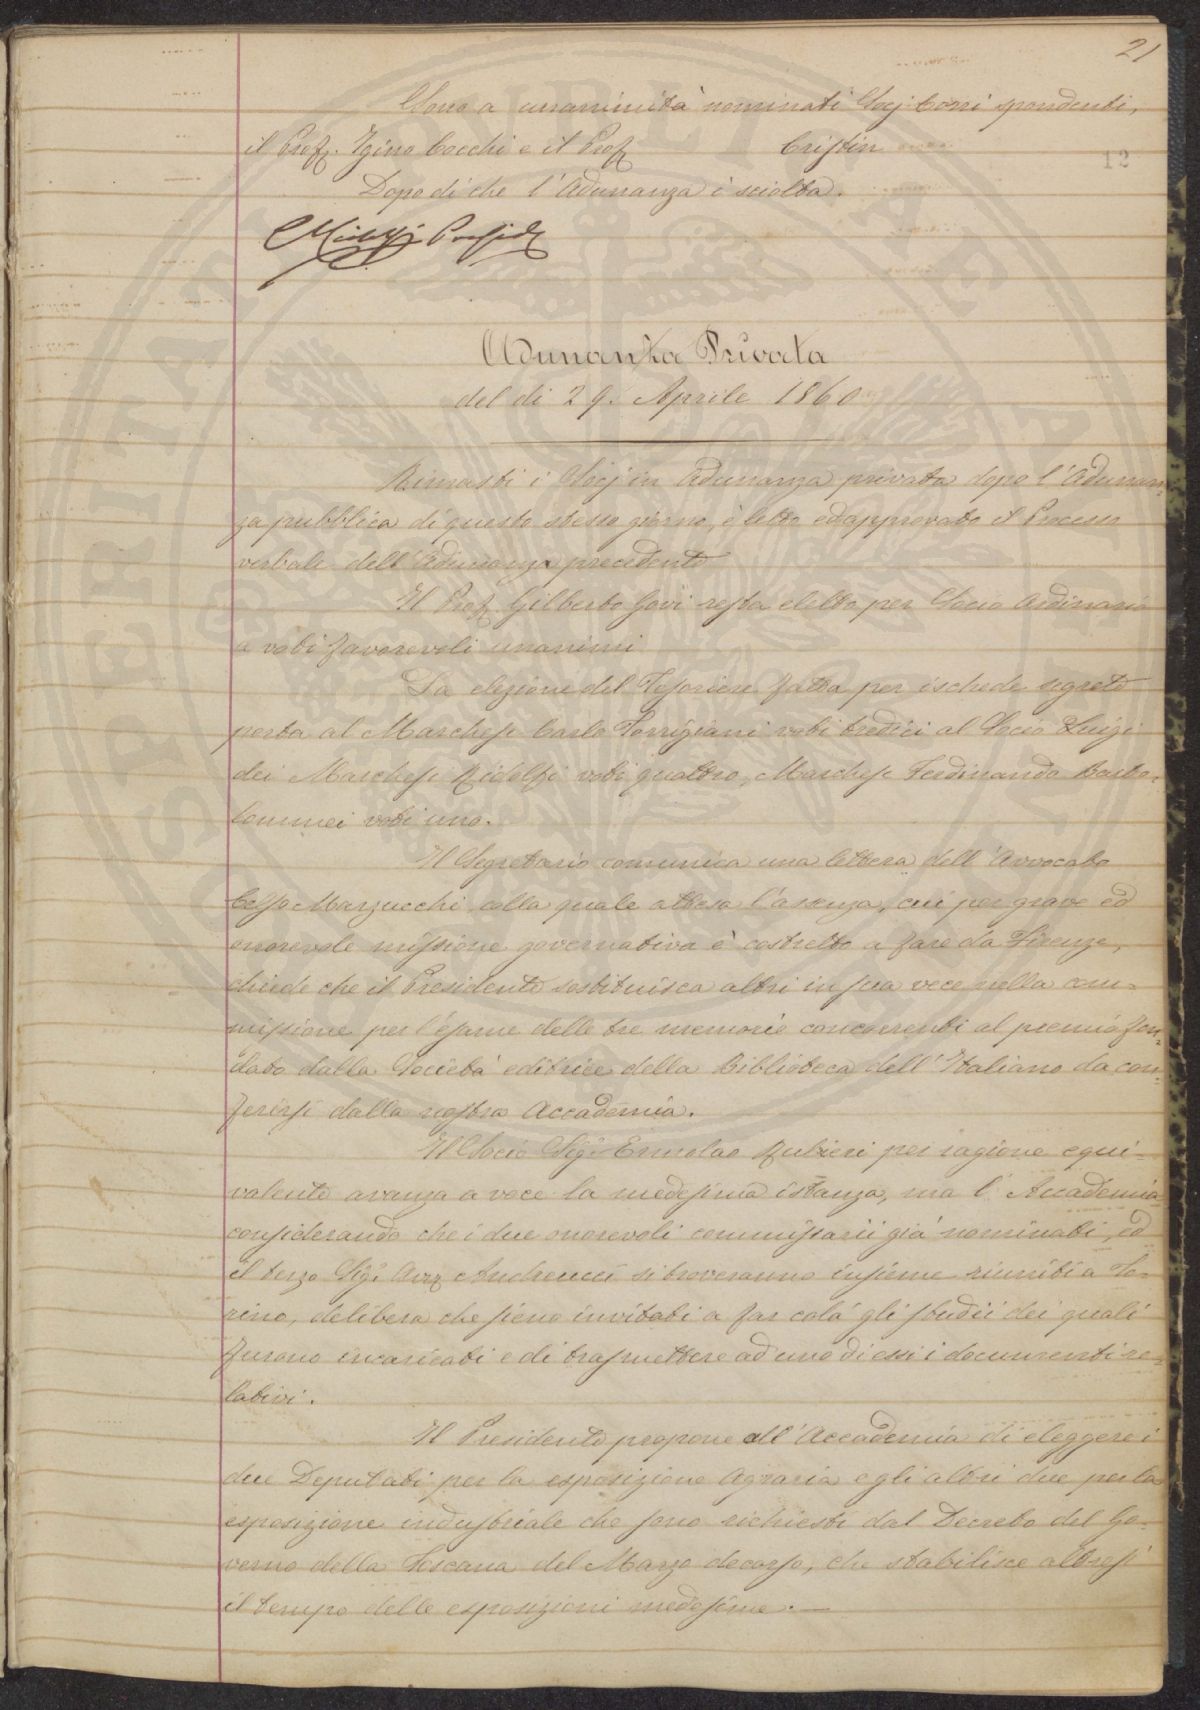 21
Sono a unanimità nominati Socj Corri spondenti,
il Prof. Igino Cocchi e il Prof Cristin
12
Dopo di che l'Adunanza è sciolta.
Adunanza Privata
del dì 29. Aprile 1860
Rimasti i Socj in Adunanza privata dopo l'Adunan=
za pubblica di questo stesso giorno, è letto ed approvato il Processo
verbale dell'Adunanza precedente
Il Prof. Gilberto Govi resta eletto per Socio Ordinario
a voti favorevoli unanimi
La elezione del Tesoriere fatta per ischede segrete
porta al Marchese Carlo Torrigiani voti tredici al Socio Luigi
dei Marchesi Ridolfi voti quattro, Marchese Ferdinando Barto=
lommei voti uno.
Il Segretario comunica una lettera dell'Avvocato
Celso Marzucchi colla quale attesa l'assenza, cui per grave ed
onorevole missione governativa è costretto a fare da Firenze,
chiede che il Presidente sostituisca altri in sua vece nella com=
missione per l'esame delle tre memorie concorrenti al premio fon=
dato dalla Società editrice della Biblioteca dell'Italiano da con=
ferirsi dalla nostra Accademia.
Il Socio Sigr. Ermolao Rubieri per ragione equi=
valente avanza a voce la medesima istanza, ma l'Accademia
considerando che i due onorevoli commissarii già nominati, ed
il terzo Sigr. Avv. Andreucci si troveranno insieme riuniti a To=
rino, delibera che sieno invitati a far colà gli studii dei quali
furono incaricati e di trasmettere ad uno di essi i documenti re=
lativi.
Il Presidente propone all'Accademia di eleggere i
due Deputati per la esposizione Agraria e gli altri due per la
esposizione industriale che sono richiesti dal Decreto del Go=
verno della Toscana del Marzo decorso, che stabilisce altresì
il tempo delle esposizioni medesime. —
SPERITATI FIDELITATE